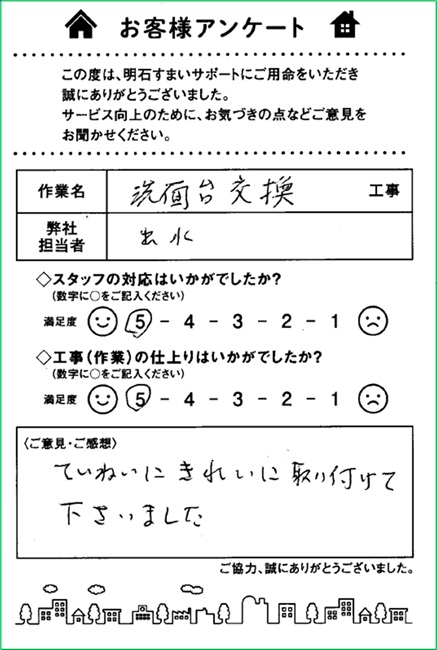 お客様アンケート
この度は、明石すまいサポートにご用命をいただき
誠にありがとうございました。
サービス向上のために、お気づきの点などご意見を
お聞かせください。
作業名 洗面台交換 工事
弊社
担当者 出水
◇スタッフの対応はいかがでしたか?
(数字に○をご記入ください)
満足度 5 - 4 - 3 - 2 - 1
◇工事(作業)の仕上りはいかがでしたか?
(数字に○をご記入ください)
満足度 5 - 4 - 3 - 2 - 1
〈ご意見・ご感想〉
ていねいにきれいに取り付けて
下さいました
ご協力、誠にありがとうございました。